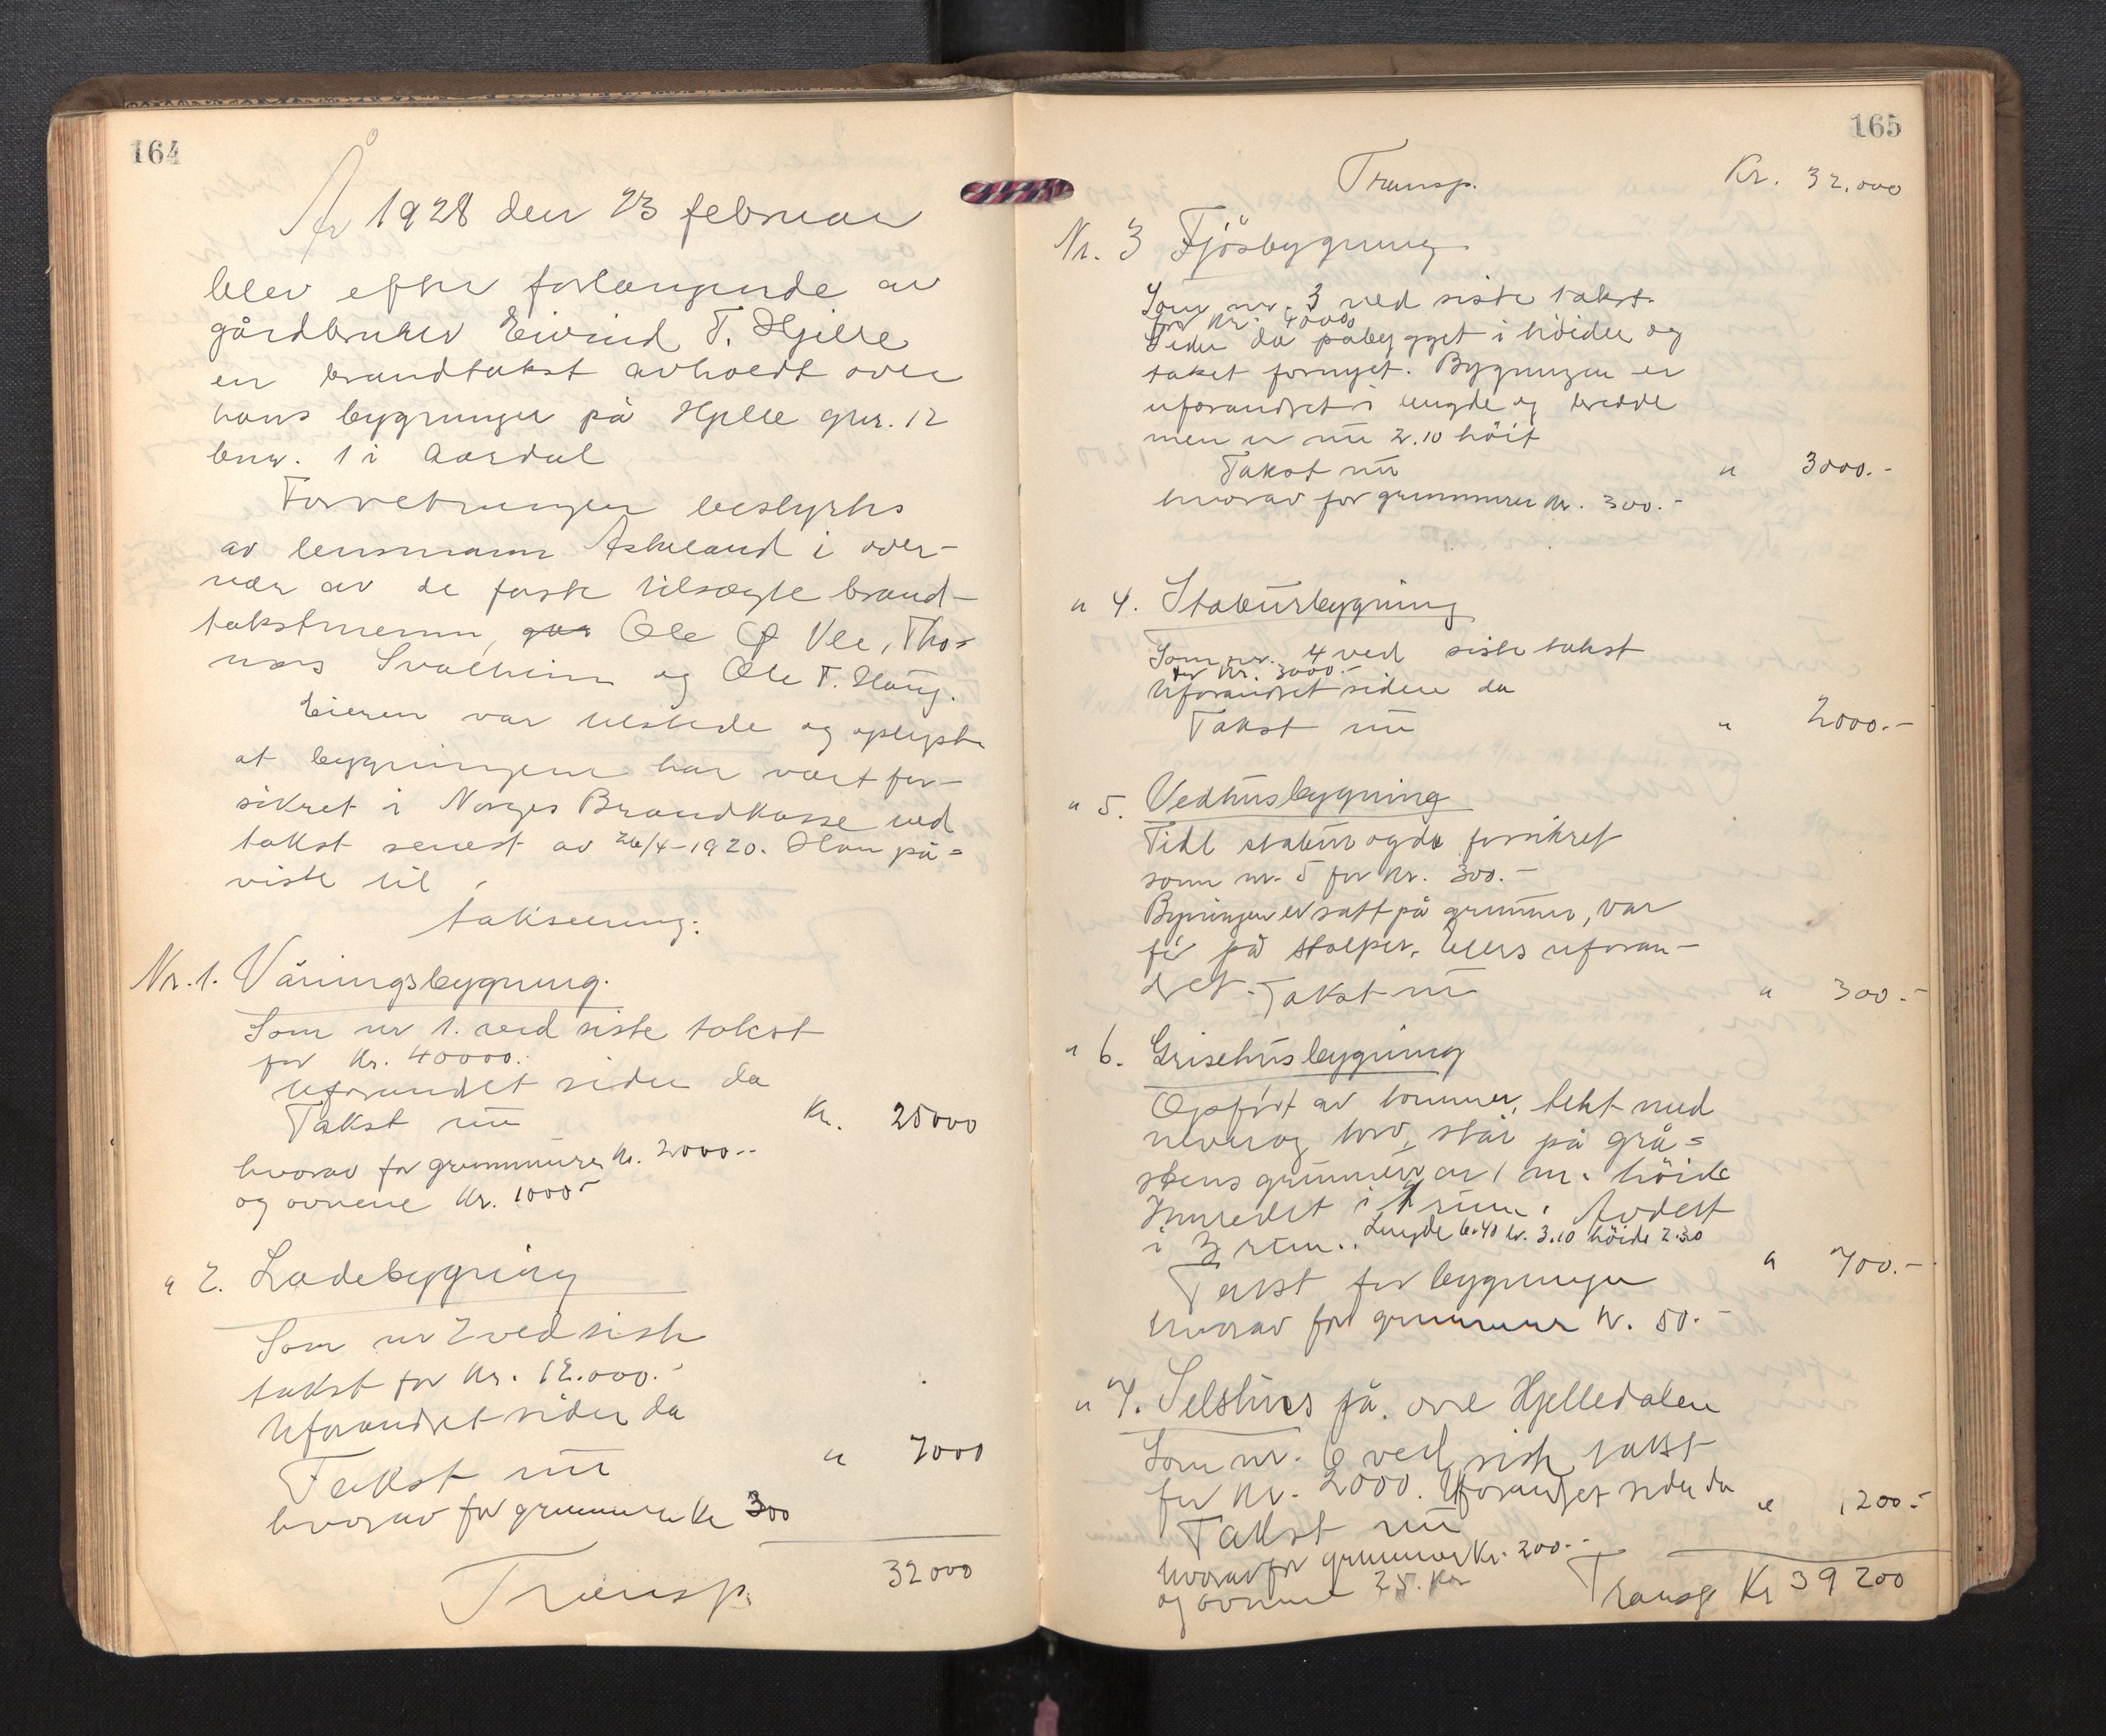 164
År 1928 den 23 februar
blev efter forlangende av
gårdbruker Eivind T. Hjelle
en brandtakst avholdt over
hans bygninger på Hjelle gnr. 12
bnr. 1 i Aardal
Forretningen bestyrtes
av lensmann Askeland i over-
vær av de faste tilsagte brand-
takstmenn, Ole O Vee, Tho-
mas Svalheim og Ole T. Haug.
Eieren var tilstede og oplyste
at bygningene har vært for-
sikret i Norges Brandkasse ved
takst senest av 26/4-1920. Han på=
viste til
taksering:
Nr. 1. Våningsbygning.
Som nr 1. ved siste takst
for Kr. 40000.-
Uforandret siden da
Takst nu Kr. 25000
hvorav for grunnmuren kr. 2000.-
og ovnene Kr. 1000-
" 2. Ladebygning
Som nr 2 ved siste
takst for Kr. 12.000.-
Uforandret siden da
Takst nu " 7000
hvorav for grunmuren Kr 300
Transp. 32000
165
Transp. Kr. 32.000
Nr. 3 Fjösbygning
Som nr. 3 ved siste takst.
for Kr. 4000
Siden da påbygget i höiden og
taket fornyet. Bygningen er
uforandret i lengde og bredde
men er nu 2.10 höit
Takst nu " 3000.-
hvorav for grunnmuren kr. 300.-
" 4. Stabursbygning
Som nr. 4 ved siste takst
for Kr. 3000.-
Uforandret siden da
Takst nu " 2000.-
" 5. Vedhusbygning
Tidl stabur og da forsikret
som nr. 5 for Kr. 300.-
Bygningen er satt på grunmur, var
för på stolper. Ellers uforan-
dret. Takst nu " 300.-
" 6. Grisehusbygning
Opfört av tömmer, tekt med
never og torv, står på grå=
stensgrunmur av 1 m. höide
Innredet i 1 rum. Avdelt
i 3 rum.. Lengde 6.40 br. 3.10 höide 2.30
Takst for bygningen " 700.-
hvorav for grunmur kr. 50.-
" 7. Selshus på övre Hjelledalen
Som nr. 6 ved siste takst
for Kr. 2000. Uforandret siden da
Takst nu " 1200.-
hvorav for grunmur Kr. 200.-
og ovnene 25. Kr
Transp Kr 39 200